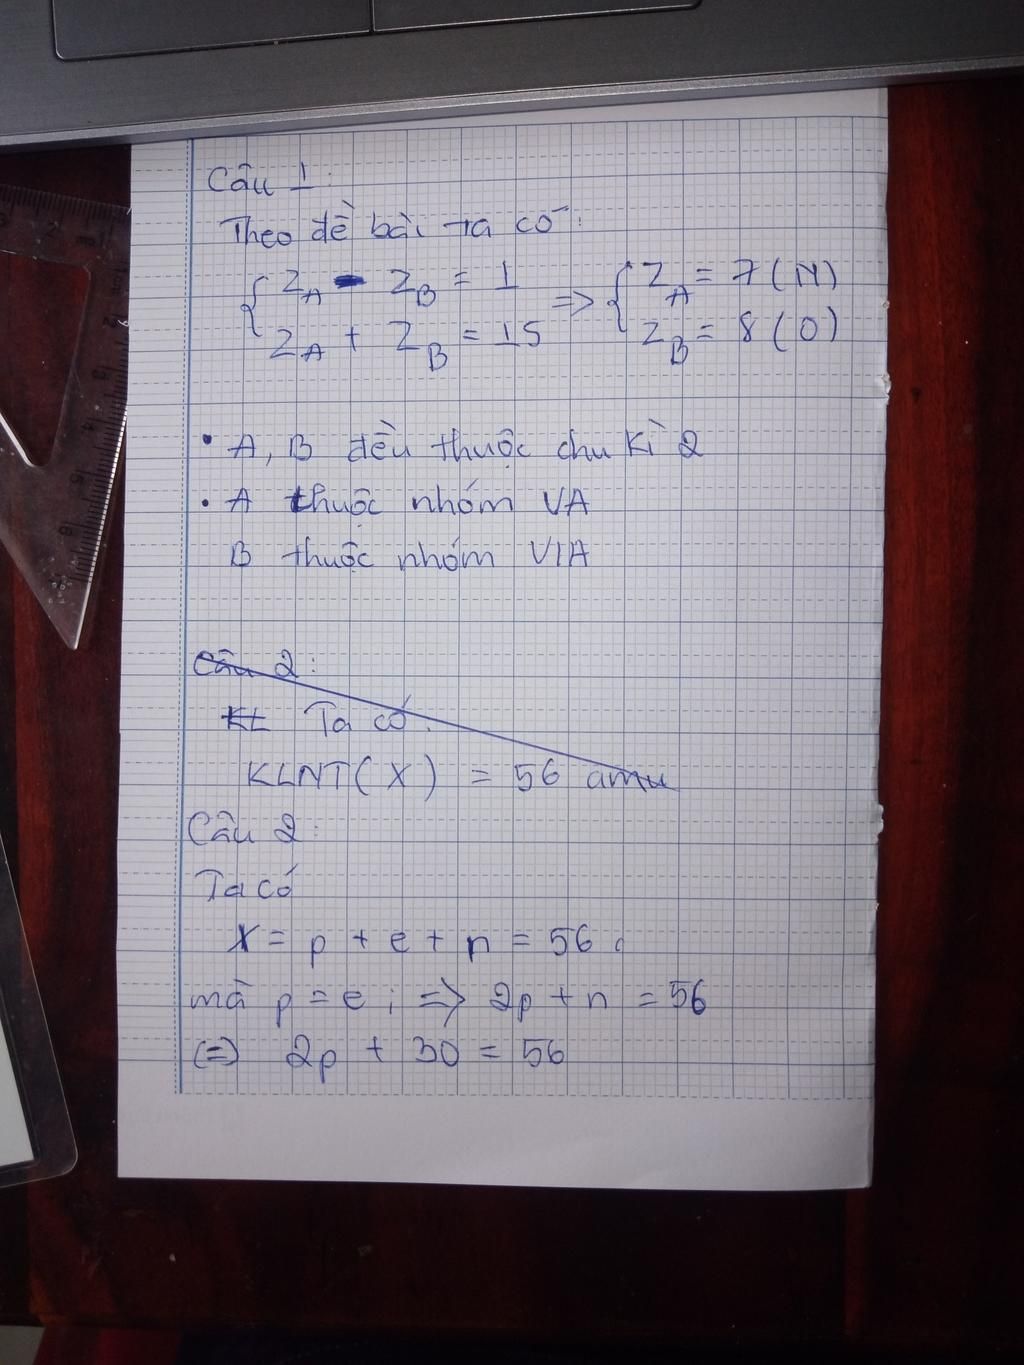 Câu 1:
Theo đề bài ta có:
{ Z_A - Z_B = 1 => { Z_A = 7 (N)
Z_A + Z_B = 15 Z_B = 8 (O)
• A, B đều thuộc chu kì 2
• A thuộc nhóm VA
B thuộc nhóm VIA
Câu 2:
KL Ta có.
KLNT(X) = 56 amu
Câu 2:
Ta có
X = p + e + n = 56.
mà p = e; => 2p + n = 56
(=) 2p + 30 = 56